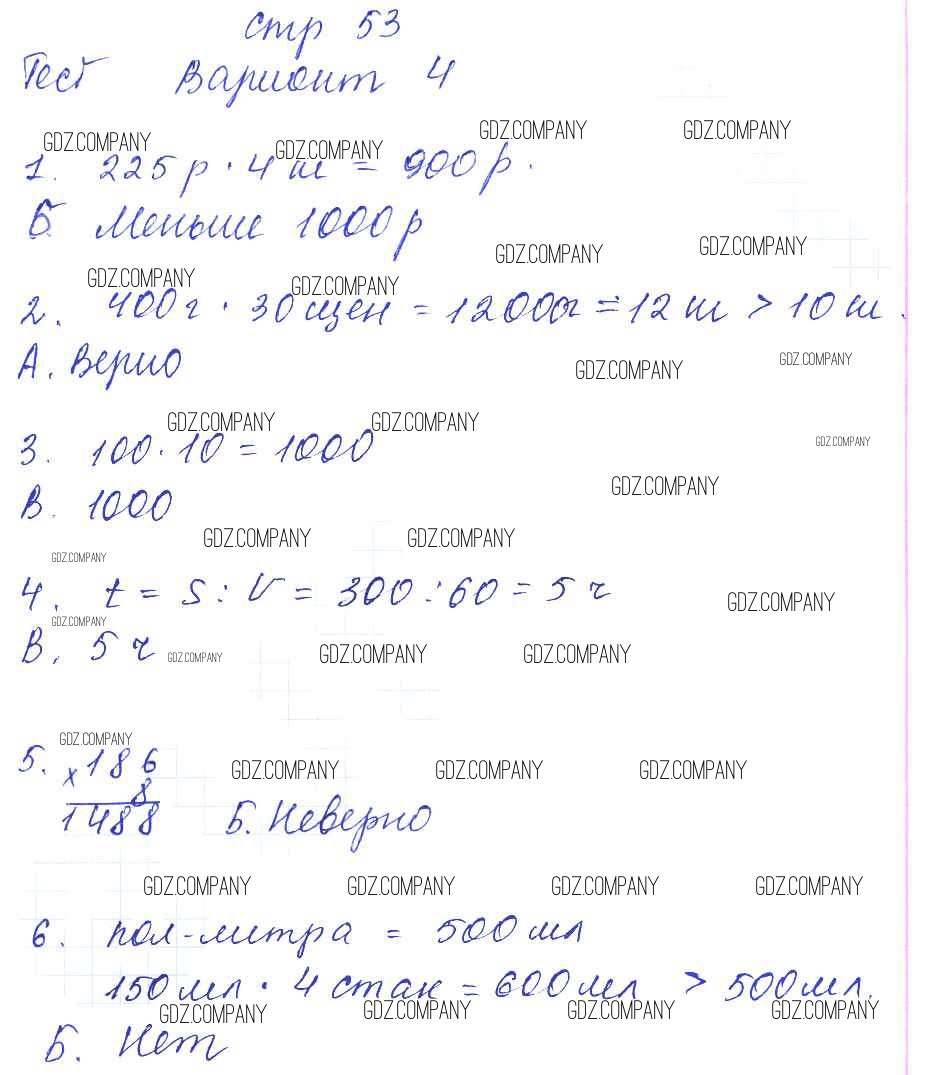 стр 53
Тест Вариант 4
GDZ.COMPANY GDZ.COMPANY GDZ.COMPANY GDZ.COMPANY
1. 225 р · 4 ш = 900 р.
Б Меньше 1000 р
GDZ.COMPANY GDZ.COMPANY
GDZ.COMPANY GDZ.COMPANY
2. 400 г · 30 щен = 12000г = 12 ш > 10 ш.
А. Верно
GDZ.COMPANY GDZ.COMPANY
GDZ.COMPANY GDZ.COMPANY GDZ.COMPANY
3. 100 · 10 = 1000
GDZ.COMPANY
В. 1000
GDZ.COMPANY GDZ.COMPANY
GDZ.COMPANY
4. t = S : V = 300 : 60 = 5 ч
GDZ.COMPANY
GDZ.COMPANY
В. 5 ч
GDZ.COMPANY GDZ.COMPANY GDZ.COMPANY
GDZ.COMPANY
5. х 186
GDZ.COMPANY GDZ.COMPANY GDZ.COMPANY
8
1488 Б. Неверно
GDZ.COMPANY GDZ.COMPANY GDZ.COMPANY GDZ.COMPANY
6. пол-литра = 500 мл
150 мл · 4 стак = 600 мл > 500 мл.
GDZ.COMPANY GDZ.COMPANY GDZ.COMPANY GDZ.COMPANY
Б. Нет